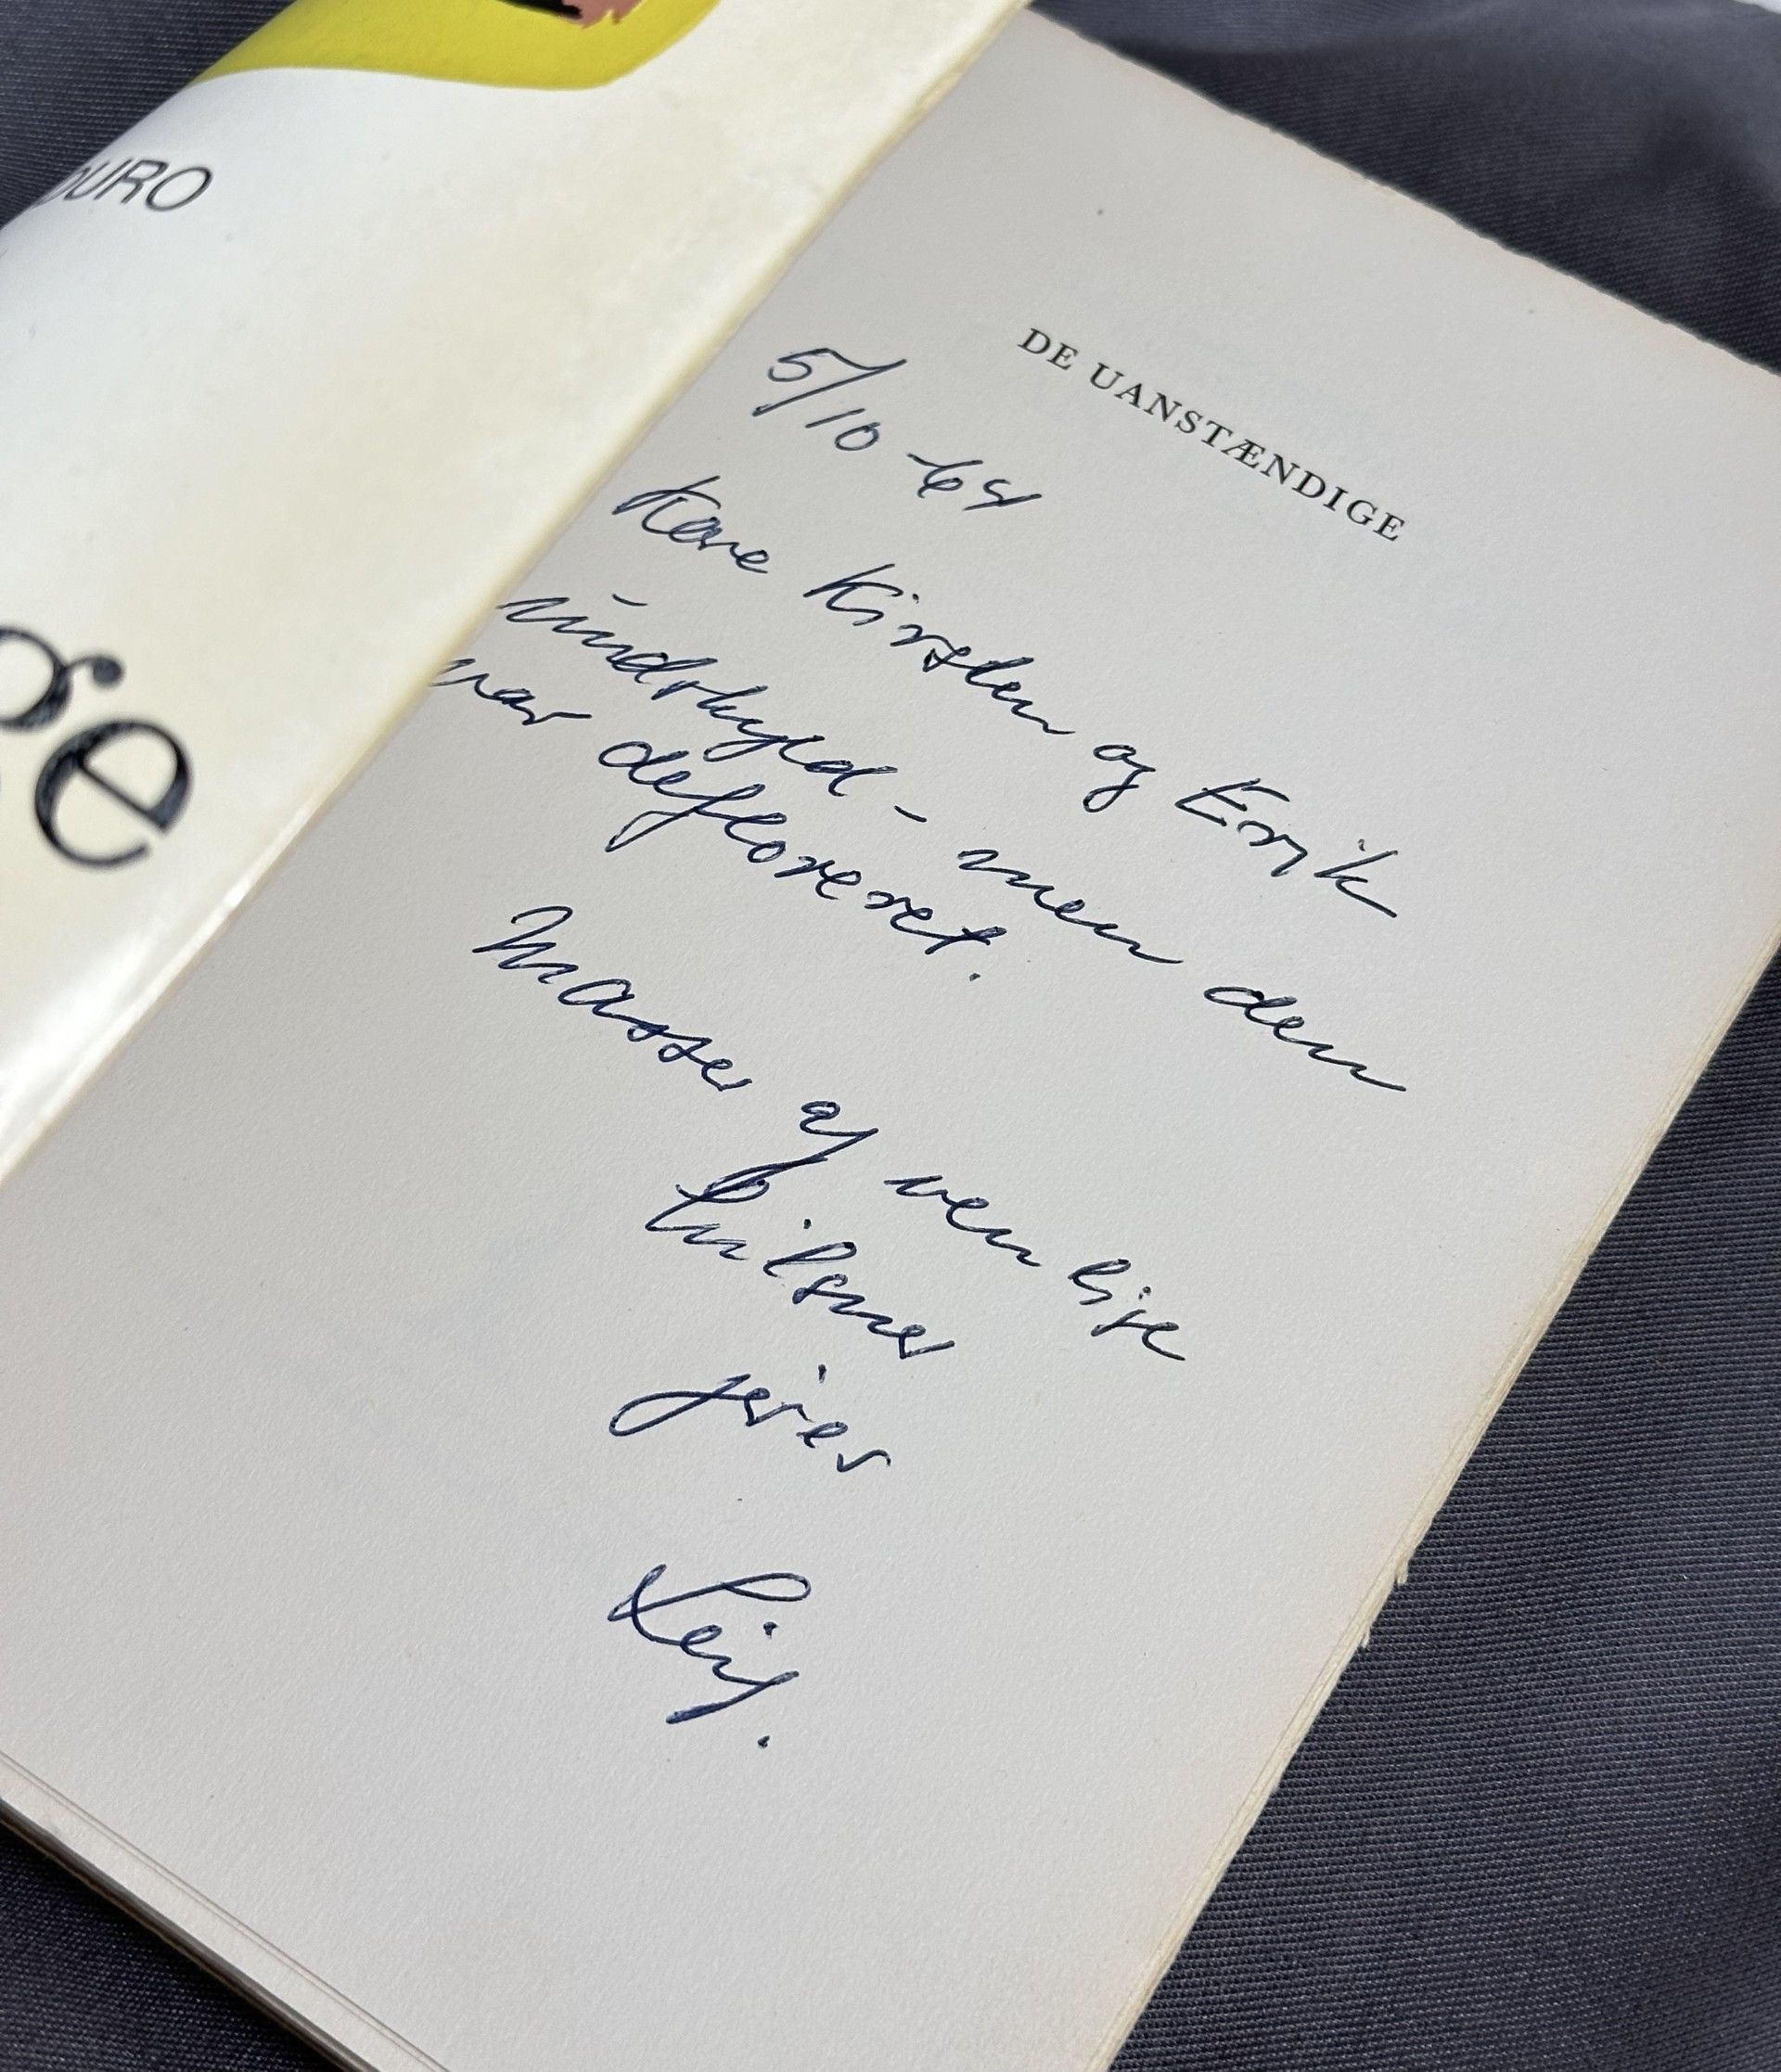 DURO
ge
DE UANSTÆNDIGE
5/10-64
Kære Kirsten og Erik
undskyld - men den
var defloreret.
Masser af venlige
hilsner
jeres
Leif.